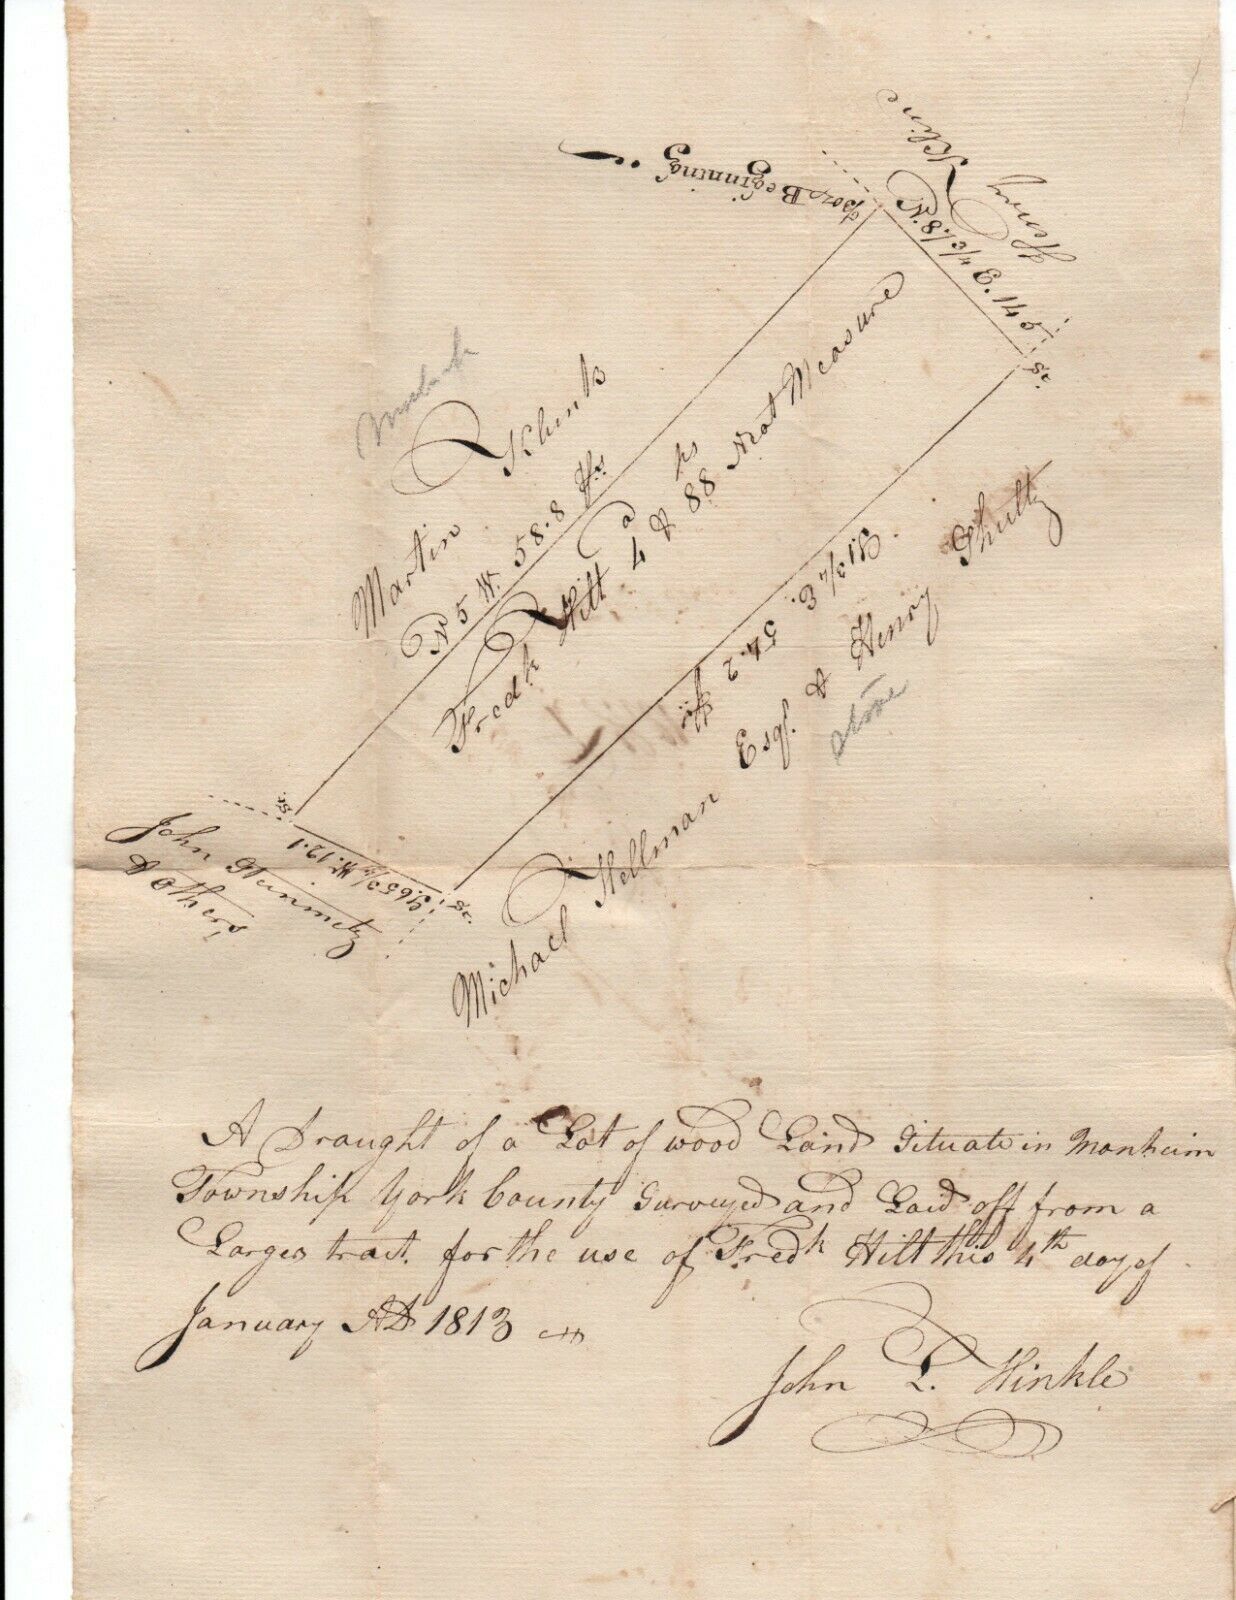 Beginning
Henry Kline
Martin Klunk
N 5 W. 58.8 Ps
Fredk Hilt 4 a & 88 ps Neat Measure
S 1 3/4 E. 54.2 Ps
Michael Hellman Esqr. & Henry Shultz
above
S 65 3/4 W. 12.1
John Steinmetz
& Others
St.
St.
St.
A Draught of a Lot of wood Land Situate in Manheim
Township York County Surveyed and Laid off from a
Larger tract. for the use of Fredk Hilt this 4th day of
January AD 1813
John L. Hinkle